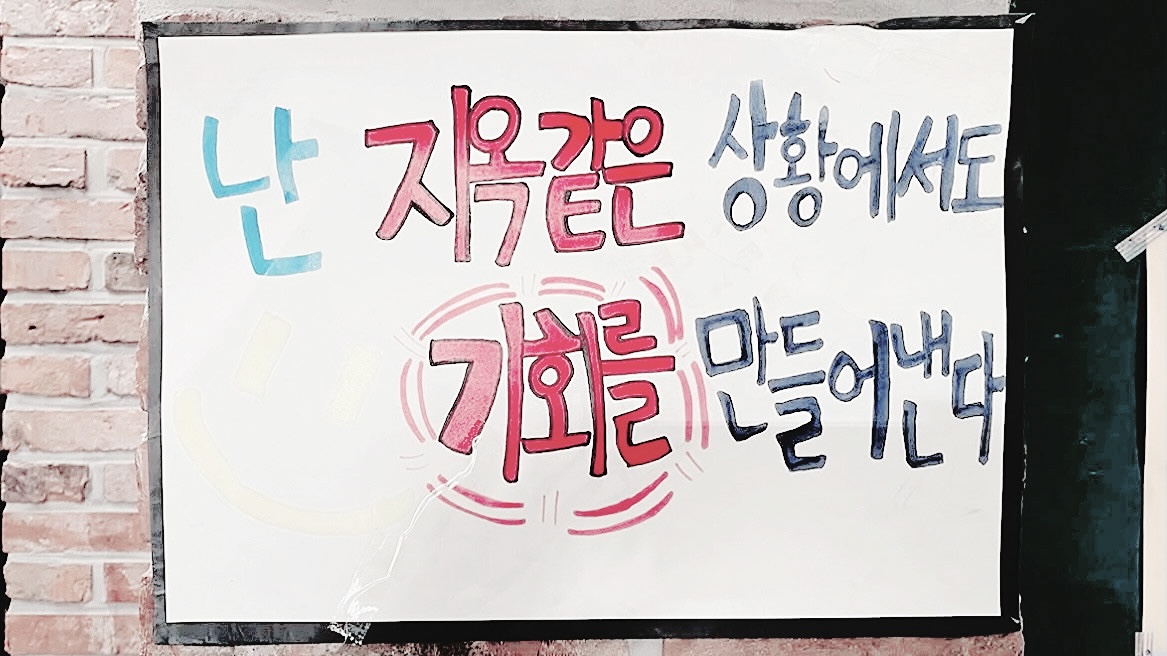 난 지옥같은 상황에서도
기회를 만들어낸다